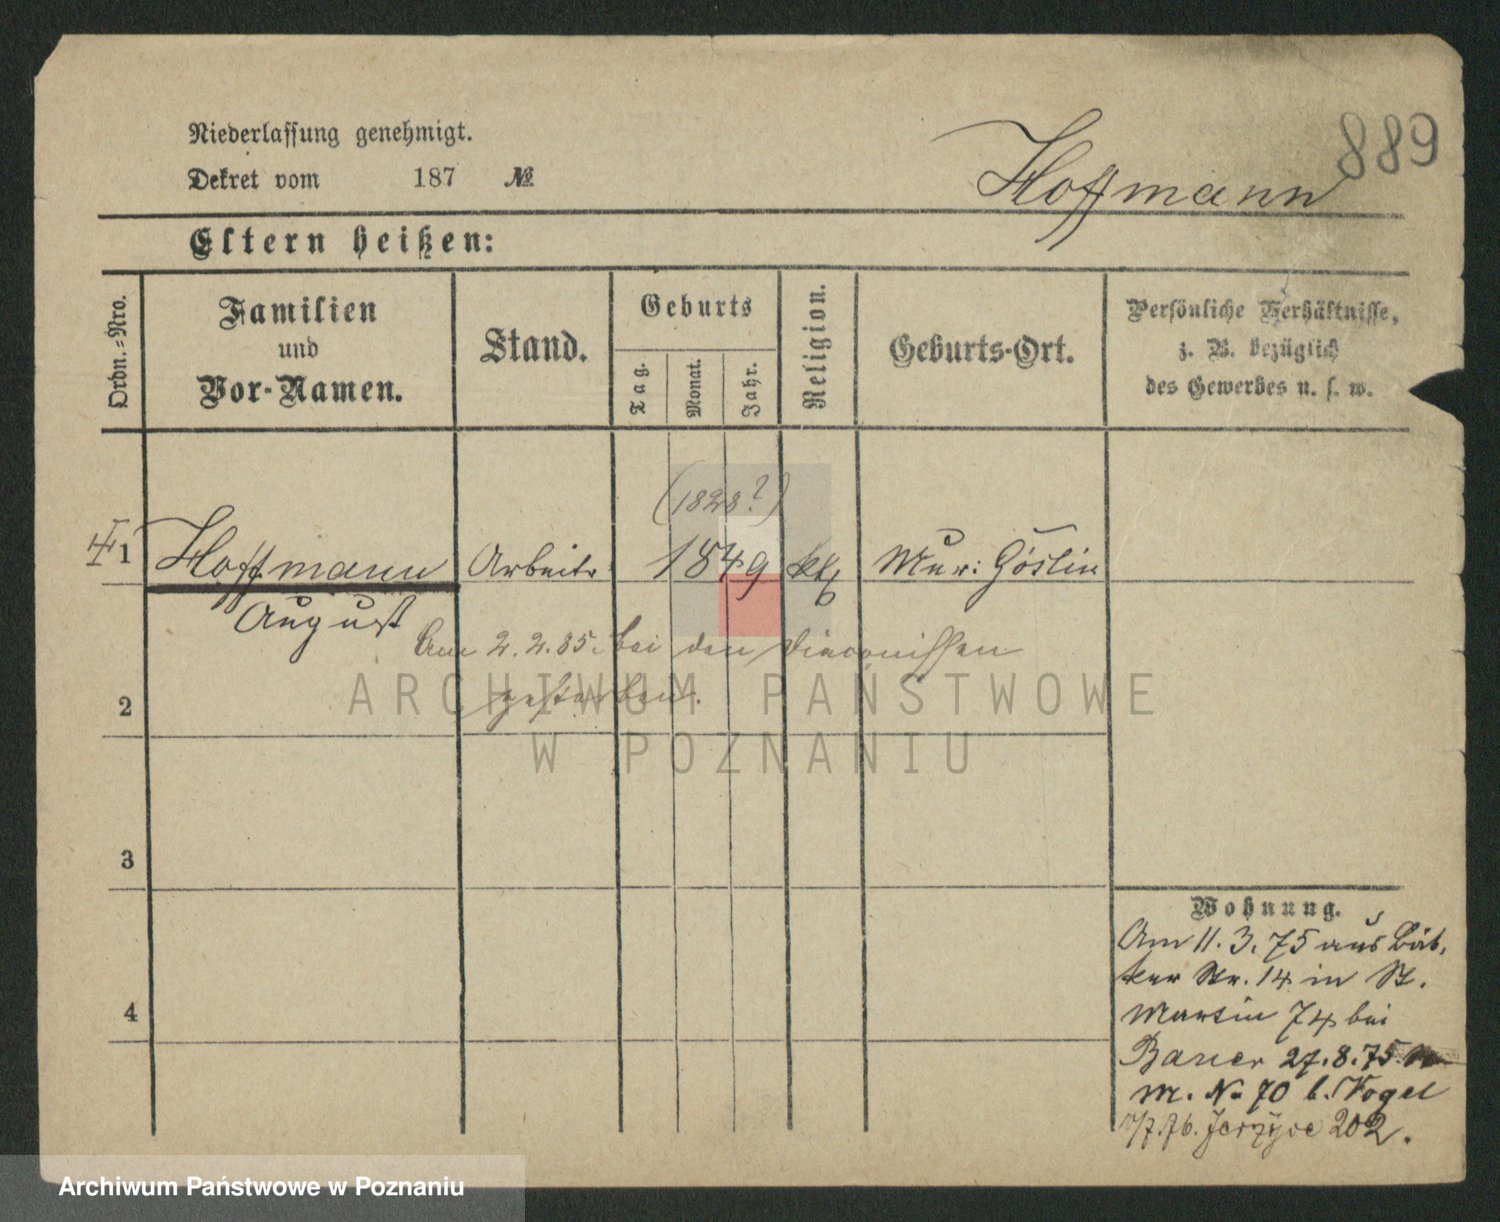 889
Hoffmann
Niederlassung genehmigt.
Dekret vom 187 №
Eltern heißen:
Ordn.-Nro.
Familien
und
Vor-Namen.
Stand.
Geburts
Tag.
Monat.
Jahr.
Religion.
Geburts-Ort.
Persönliche Verhältnisse,
z. B. bezüglich
des Gewerbes u. s. w.
(1828?)
1 Hoffmann Arbeiter 1849 kth Mur: Goslin
August
Am 2.2.85. bei den Diaconissen
gestorben.
2
3
4
Wohnung.
Am 11.3.75 aus
Str. 14 in St.
Martin 74 bei
Bauer 27.8.75
M. No 70 b. Vogel
Jerzyce 202.
ARCHIWUM PAŃSTWOWE
W POZNANIU
Archiwum Państwowe w Poznaniu